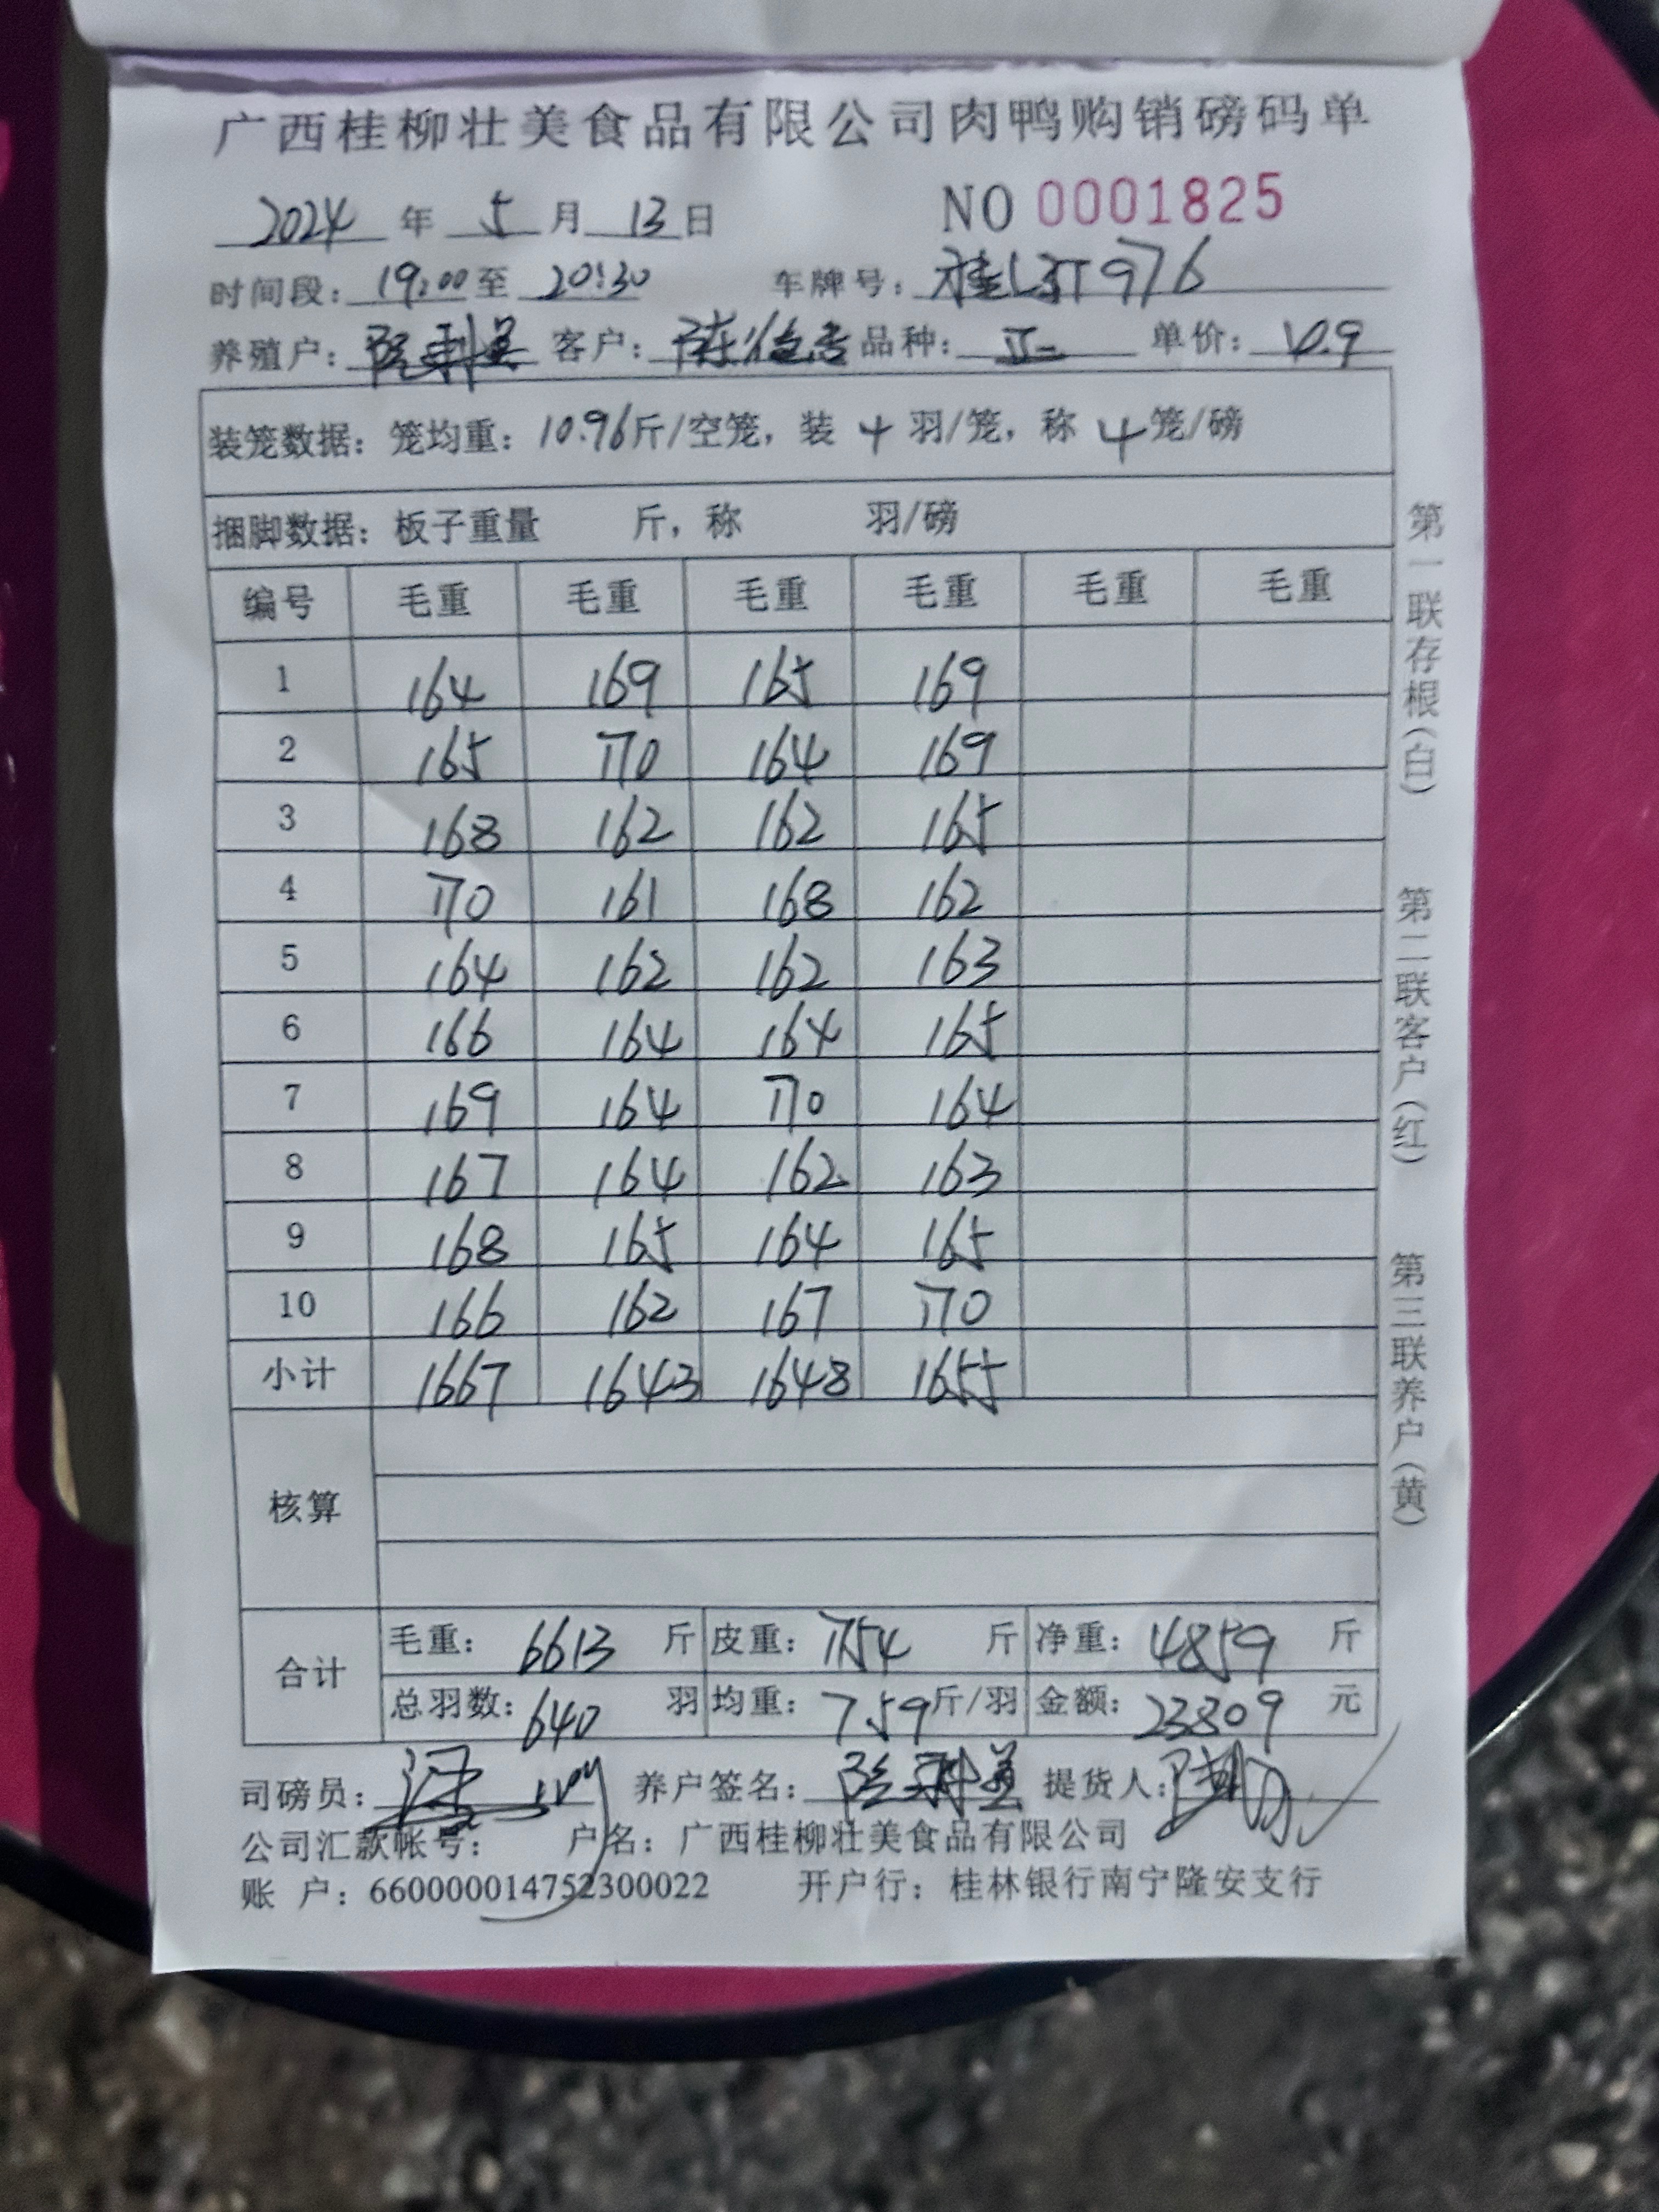 广西桂柳壮美食品有限公司肉鸭购销磅码单
2024 年 5 月 13 日 NO 0001825
时间段: 19:00 至 20:30 车牌号: 976
养殖户: 客户: 品种: 单价: 4.9
装笼数据: 笼均重: 10.96斤/空笼, 装 4 羽/笼, 称 4 笼/磅
捆脚数据: 板子重量 斤, 称 羽/磅
编号 毛重 毛重 毛重 毛重 毛重 毛重
1 164 169 165 169
2 165 170 164 169
3 168 162 162 165
4 170 161 168 162
5 164 162 162 163
6 166 164 164 165
7 169 164 170 164
8 167 164 162 163
9 168 165 164 165
10 166 162 167 170
小计 1667 1643 1648 1655
核算
合计 毛重: 6613 斤 皮重: 1754 斤 净重: 4859 斤
总羽数: 640 羽 均重: 7.59 斤/羽 金额: 23809 元
司磅员: 养户签名: 提货人:
公司汇款帐号: 户名: 广西桂柳壮美食品有限公司
账 户: 660000014752300022 开户行: 桂林银行南宁隆安支行
第一联存根(白) 第二联客户(红) 第三联养户(黄)